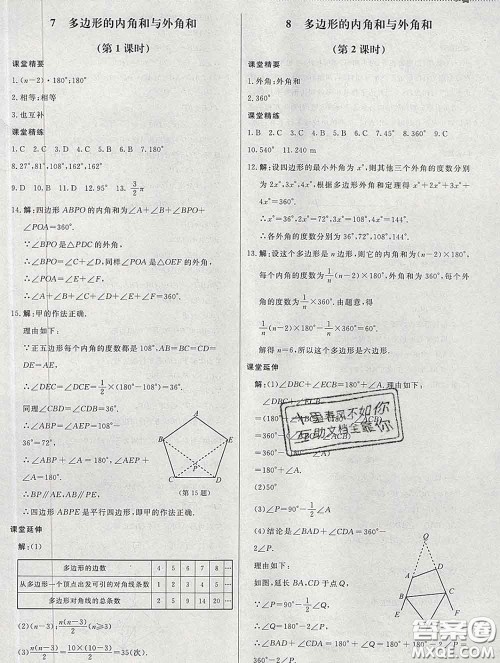 7 多边形的内角和与外角和
(第1课时)
课堂精要
1.(n-2)·180°;180°
2.相等;相等
3.也互补
课堂精练
1.C 2.C 3.A 4.B 5.C 6.B 7.180°
8.27°,81°,108°,162°,162°
9.D 10.D 11.D 12.95° 13.3/2π
14.解:四边形ABPO的内角和为∠A+∠B+∠BPO+
∠POA=360°.
∵∠BPO是△PDC的外角,
∴∠BPO=∠C+∠D,同样∠POA是△OEF的外角,
∴∠POA=∠E+∠F.
∴∠A+∠B+∠C+∠D+∠E+∠F=360°.
15.解:甲的作法正确.
理由如下:
∵正五边形每个内角的度数都是108°,AB=BC=CD
=DE=AE,
∴∠DEC=∠DCE=1/2×(180°-108°)=36°.
同理∠CBD=∠CDB=36°.
∴∠ABP=∠AEP=108°-36°=72°.
∴∠BPE=360°-108°-72°-72°
=108°=∠A.
∵∠A+∠ABP=108°+72°=180°,
∠A+∠AEP=108°+72°=180°,
∴BP∥AE,AP∥BE.
∴四边形ABPE是平行四边形,即甲的作法正确.
A
B
E
P
C
D
(第15题)
课堂延伸
解:(1)
多边形的边数 4 5 6 7 8 …
从多边形一个顶点出发可引的对角线条数 1 2 3 4 5 …
多边形对角线的总条数 2 5 9 14 20 …
(2)(n-3);n(n-3)/2(n≥3)
(3)n(n-3)/2=10×(10-3)/2=35(次).
8 多边形的内角和与外角和
(第2课时)
课堂精要
1.外角;外角和
2.360°
课堂精练
10.540° 11.240 m
12.解:设四边形的最小外角为x°,则其他三个外角的度数分别
为2x°,3x°,4x°,根据多边形外角和定理得x°+2x°+3x°+
4x°=360°.
∴x°=36°,2x°=72°,3x°=108°,4x°=144°.
∴各外角的度数分别为36°,72°,108°,144°.
13.解:设这个多边形是n边形,则它的内角和为(n-2)×180°,
每个内角的度数为1/n(n-2)×180°,每个外角的度数为
1/n×360°.由题意,得
1/n(n-2)×180°=1/n×360°×2.
解得n=6,所以这个多边形是六边形.
课堂延伸
(2)50°
(3)∠P=90°-1/2∠A
(4)结论是∠BAD+∠CDA=360°-2∠P.
理由如下:
如图,延长BA,CD于点Q.
∵∠P=90°-1/2∠Q,
∴∠Q=180°-2∠P.
∴∠BAD+∠CDA=180°+∠Q
=180°+180°-2∠P
=360°-2∠P.
Q
A
D
B
C
P
七里春风不如你
互助文档全靠你
答案圈
MXQE.COM